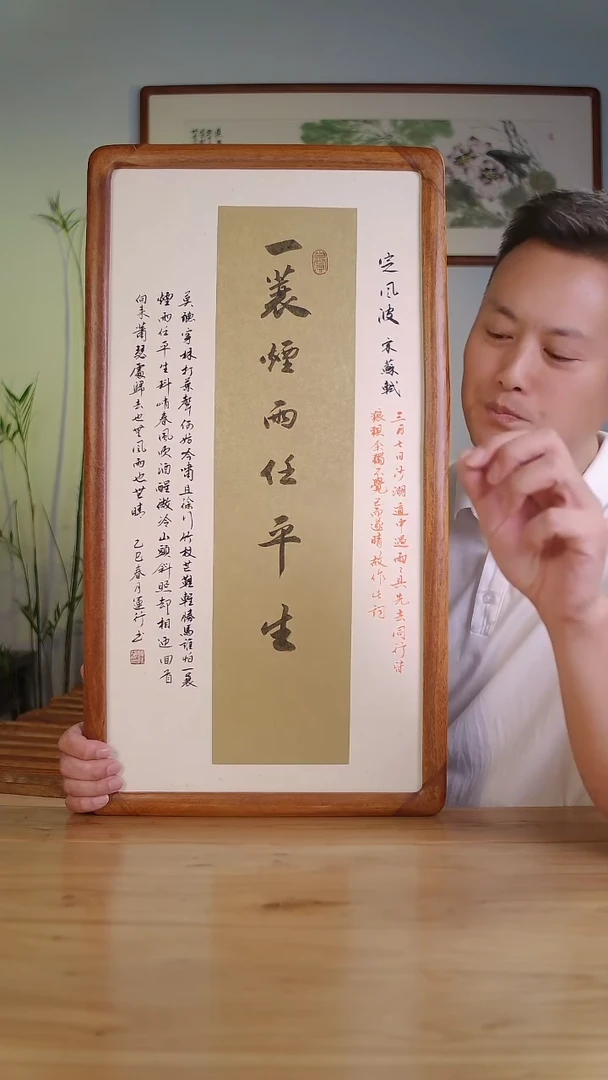 定风波 宋蘇軾
三月七日沙湖道中遇雨雨具先去同行皆
狼狽余獨不覺已而遂晴故作此詞
一蓑煙雨任平生
莫聽穿林打葉聲何妨吟嘯且徐行竹杖芒鞋輕勝馬誰怕一蓑
煙雨任平生料峭春風吹酒醒微冷山頭斜照却相迎回首
向來蕭瑟處歸去也無風雨也無晴 乙巳春月